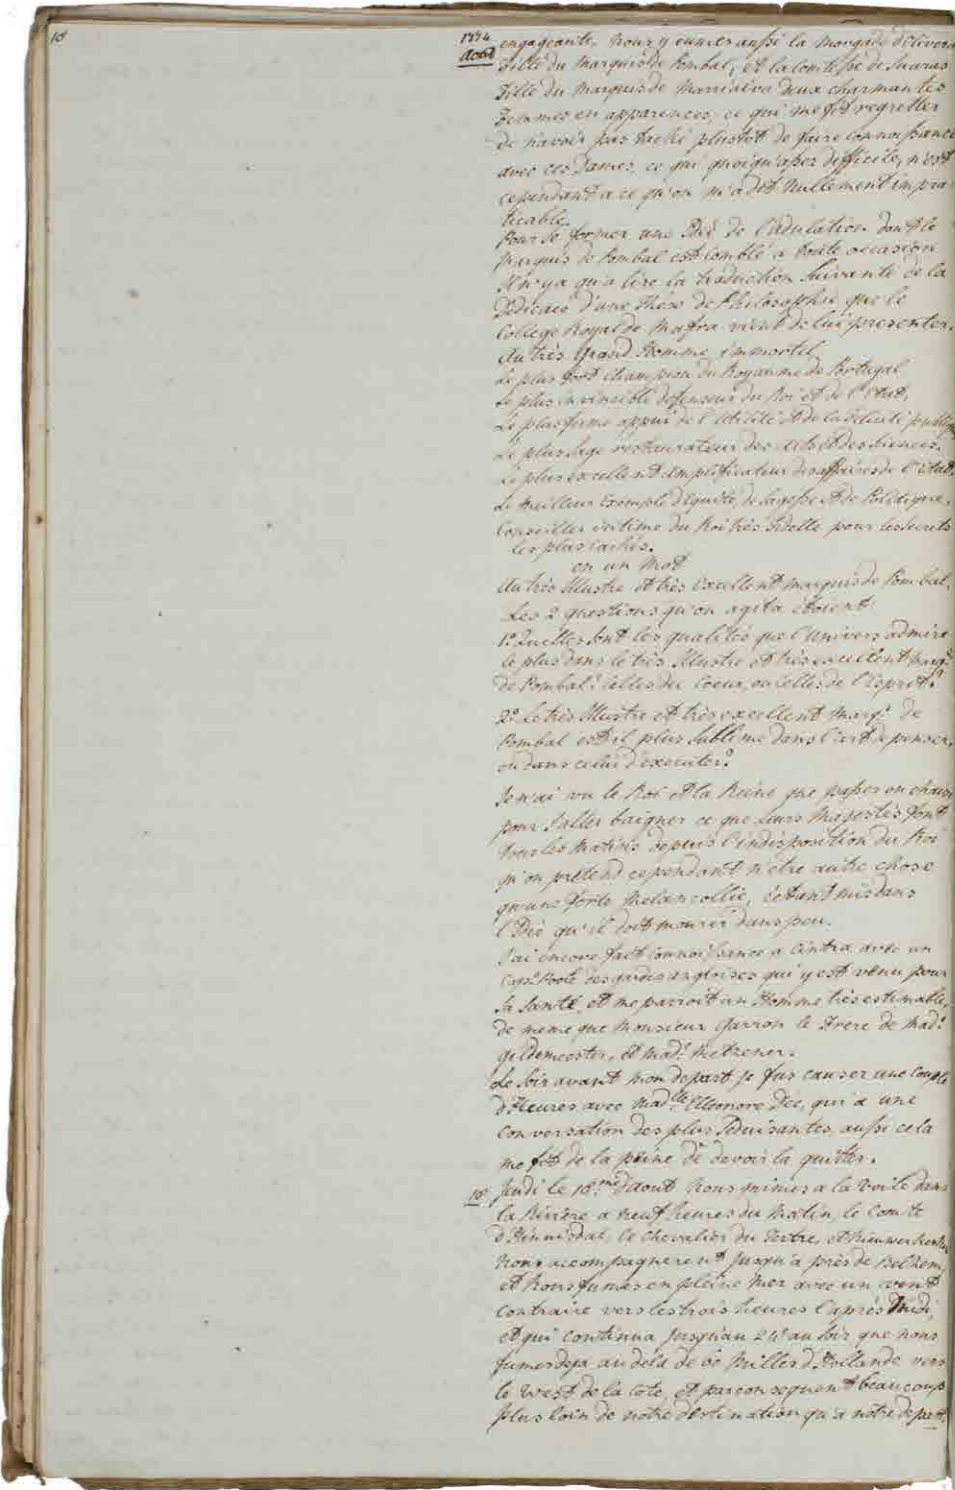 10
1774 engageante. Nous y eumes aussi la Morgade d'Olivera
Aout fille du Marquis de Pombal, et la Comtesse de
Fille du Marquis de Marialva deux charmantes
Femmes en apparences, ce qui me fit regretter
de n'avoir pas taché plustot de faire connoissance
avec ces Dames, ce qui quoiqu'assez difficile, n'est
cependant a ce qu'on m'a dit nullement impra
ticable.
Pour se former une Idée de l'adulation dont le
Marquis de Pombal est comblé a toute occasion
Il n'y a qu'a lire la traduction suivante de la
Dédicace d'une These de Philosophie que le
College Royal de Mafra vient de lui presenter.
Au très Grand Homme immortel
Le plus fort Champion du Royaume de Portugal
Le plus invincible defenseur du Roi et de l'Etat,
Le plus ferme appui de l'Utilité et de la felicité publique
Le plus sage restaurateur des Arts et des Siences.
Le plus excellent amplificateur des affaires de l'Etat.
Le meilleur Exemple d'Equité, de sagesse et de Politique.
Conseiller intime du Roi très fidelle pour les secrets
les plus cachés.
en un mot
Au très Illustre et très Excellent Marquis de Pombal.
Les 2 questions qu'on agita étoient:
1º Quelles sont les qualités que l'Univers admire
le plus dans le très Illustre et très excellent Marq:s
de Pombal? Celles du Coeur, ou Celles de l'Esprit?
2º Le très Illustre et très excellent Marq:s de
Pombal est il plus sublime dans l'art de penser,
ou dans celui d'executer?
Je n'ai vu le Roi et la Reine que passer en chaise
pour s'aller baigner ce que Leurs Majestés font
tous les Matins depuis l'indisposition du Roi
qu'on prétend cependant n'etre autre chose
qu'une forte Melancollie, s'etant mis dans
l'Idée qu'il doit mourir dans peu.
J'ai encore fait connoissance a Cintra avec un
Capt Poole des gardes angloises qui y est venu pour
sa santé, et me parroit un Homme très estimable,
de meme que Monsieur Garron le Frere de Mad:e
Gildemeester, et Mad:e Metzener.
Le soir avant mon depart je fus causer une Couple
d'Heures avec Mad:lle Elleonore Dee, qui a une
conversation des plus séduisantes, aussi cela
me fit de la peine de devoir la quitter.
18 Jeudi le 18:me d'aout nous mimes a la Voile dans
la Rivière a neuf heures du Matin, le Comte
d'Hinnisdal, le Chevalier du Tertre, et Nieuwerkerke
nous accompagnerent jusqu'a près de Belhem,
et nous fumes en pleine Mer avec un vent
contraire vers les trois heures l'après midi,
et qui continua jusqu'au 24e au soir que nous
fumes deja au dela de 60 Milles d'Hollande vers
le West de la Cote, et par consequent beaucoup
plus loin de notre destination qu'a notre depart.